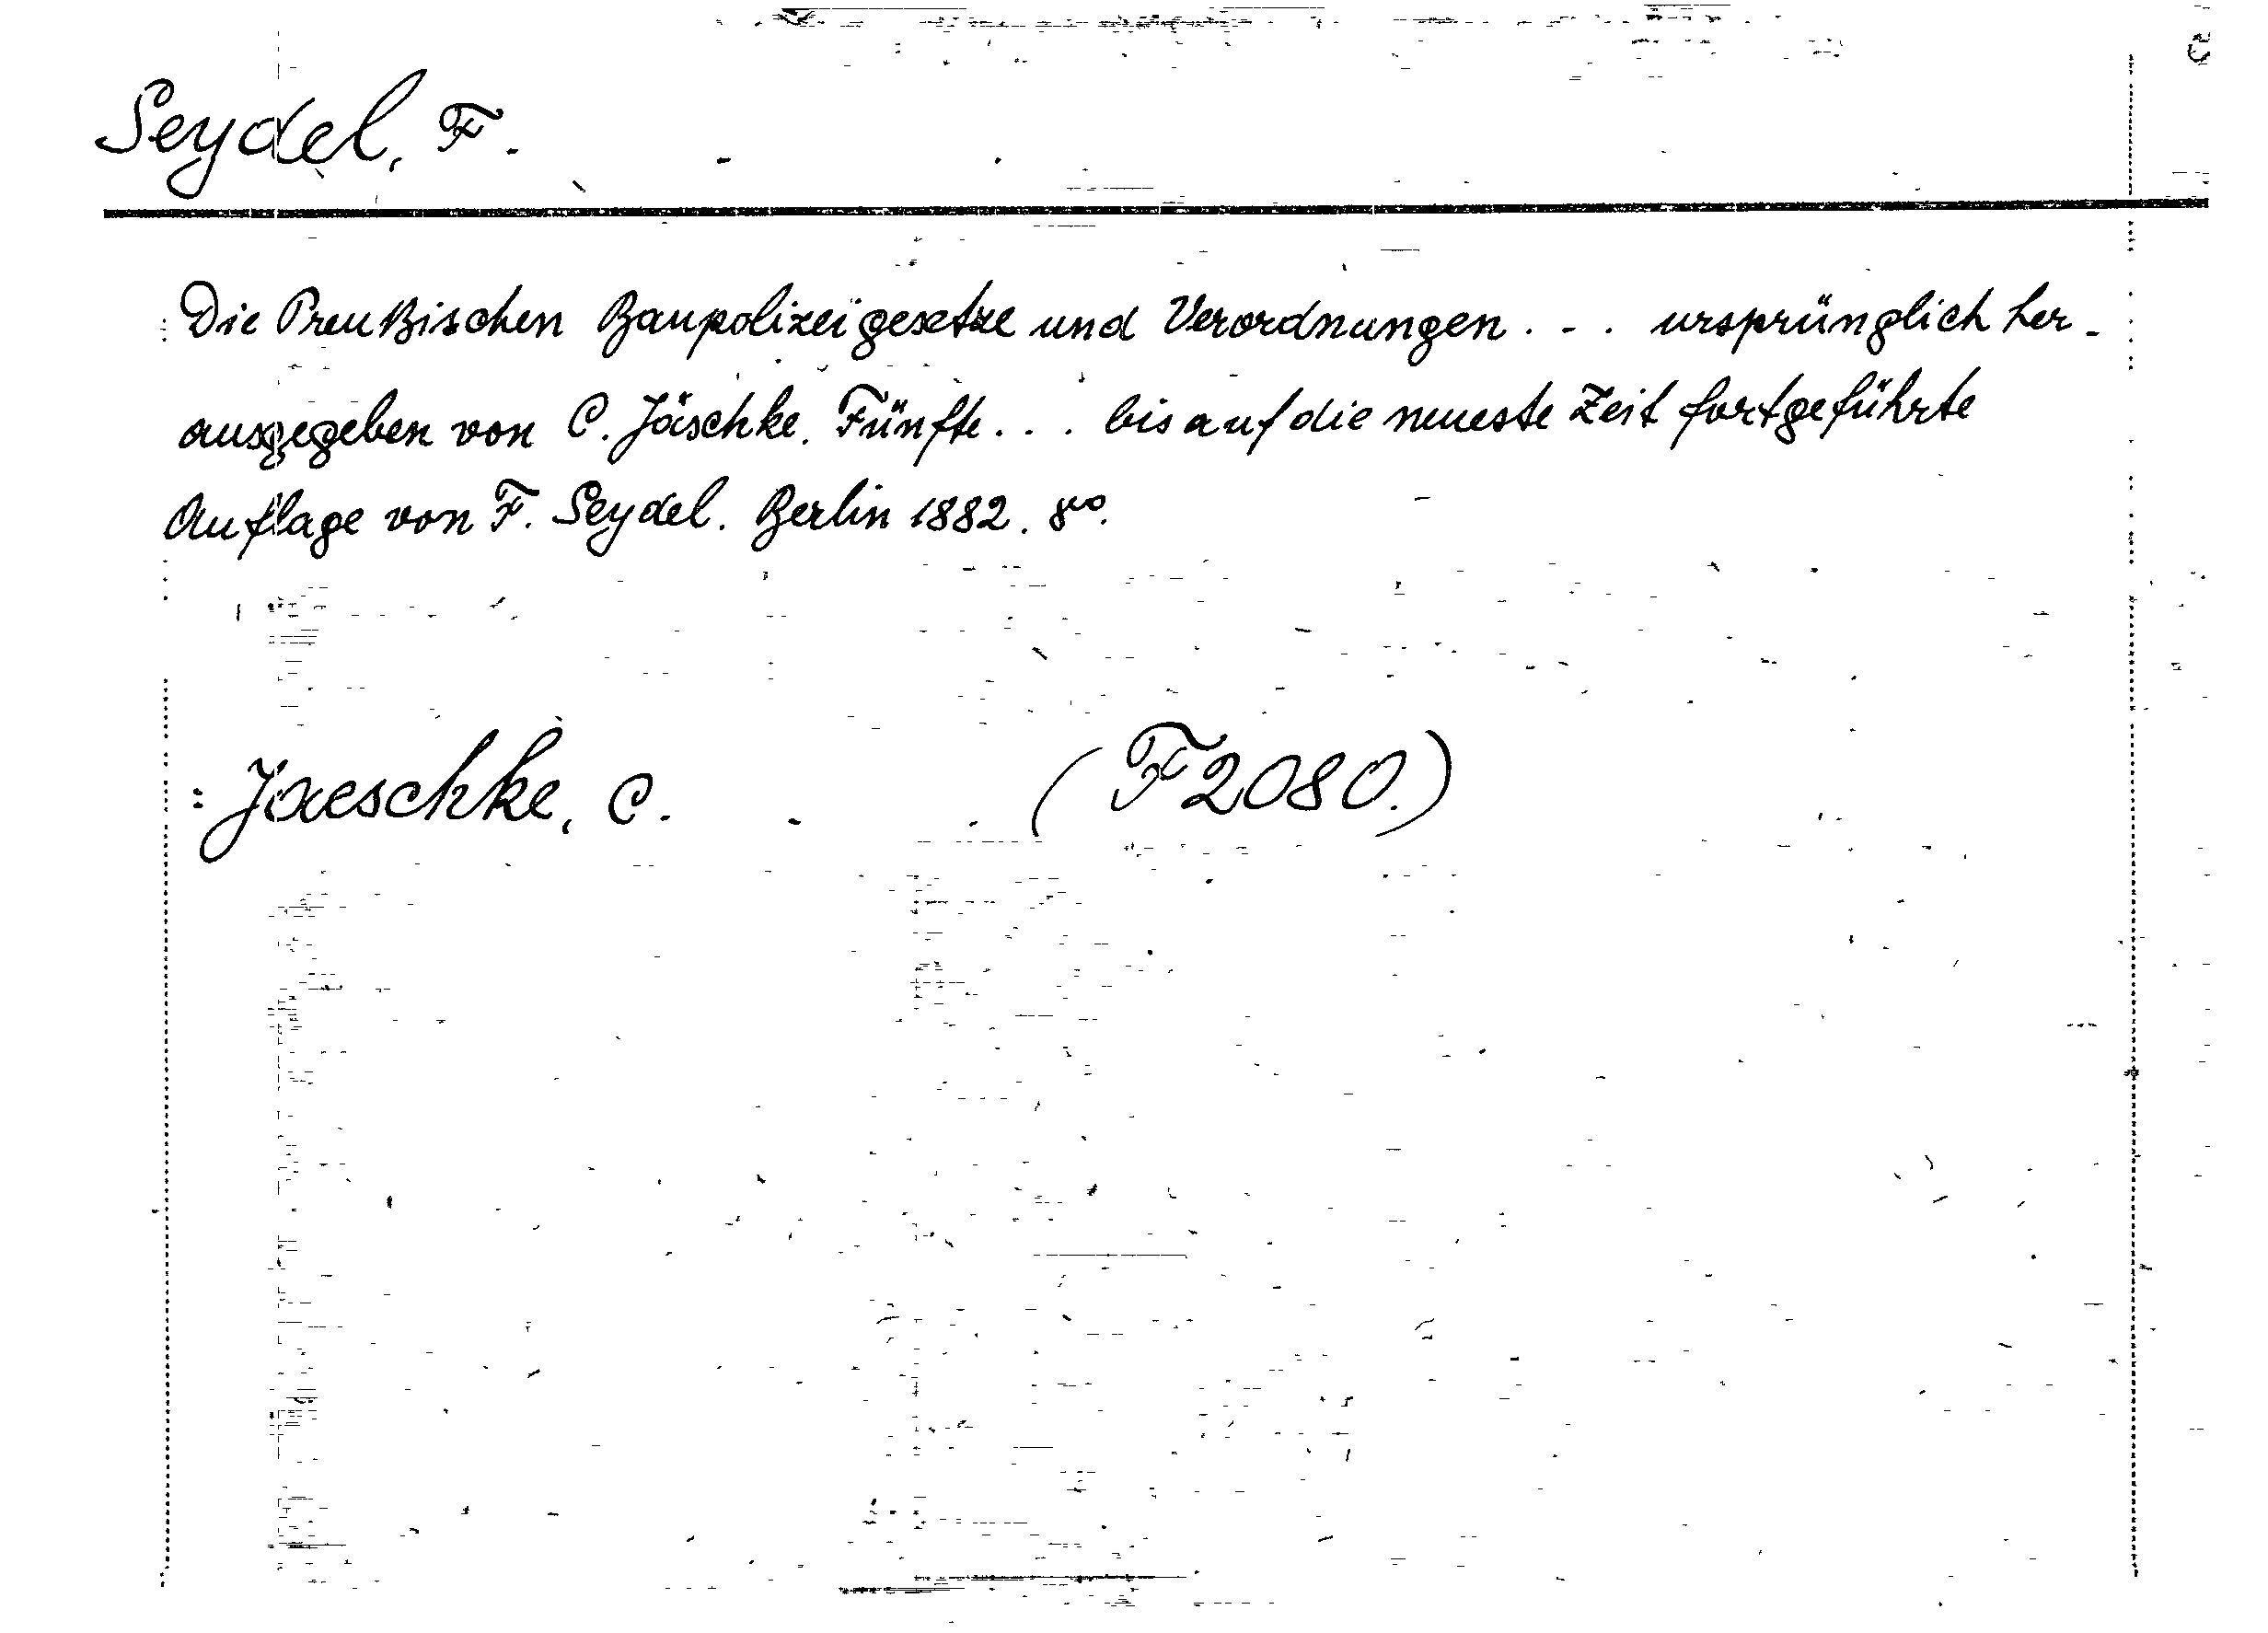 Seydel, F.
Die Preußischen Baupolizeigesetze und Verordnungen... ursprünglich her-
ausgegeben von C. Jäschke. Fünfte... bis auf die neueste Zeit fortgeführte
Auflage von F. Seydel. Berlin 1882. 8vo.
Jaeschke, C. (F2080.)